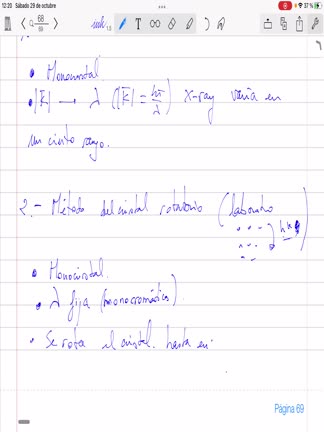 12:20 Sábado 29 de octubre
37 %
68
69
1.5
• Monocristal
• |K̅| → λ (|K̅| = 2π/λ) x-ray varía en
un cierto rango.
2.- Método del cristal rotatorio (laboratorio
• Monocristal.
• λ fija (monocromático).
• Se rota el cristal hasta en
Página 69